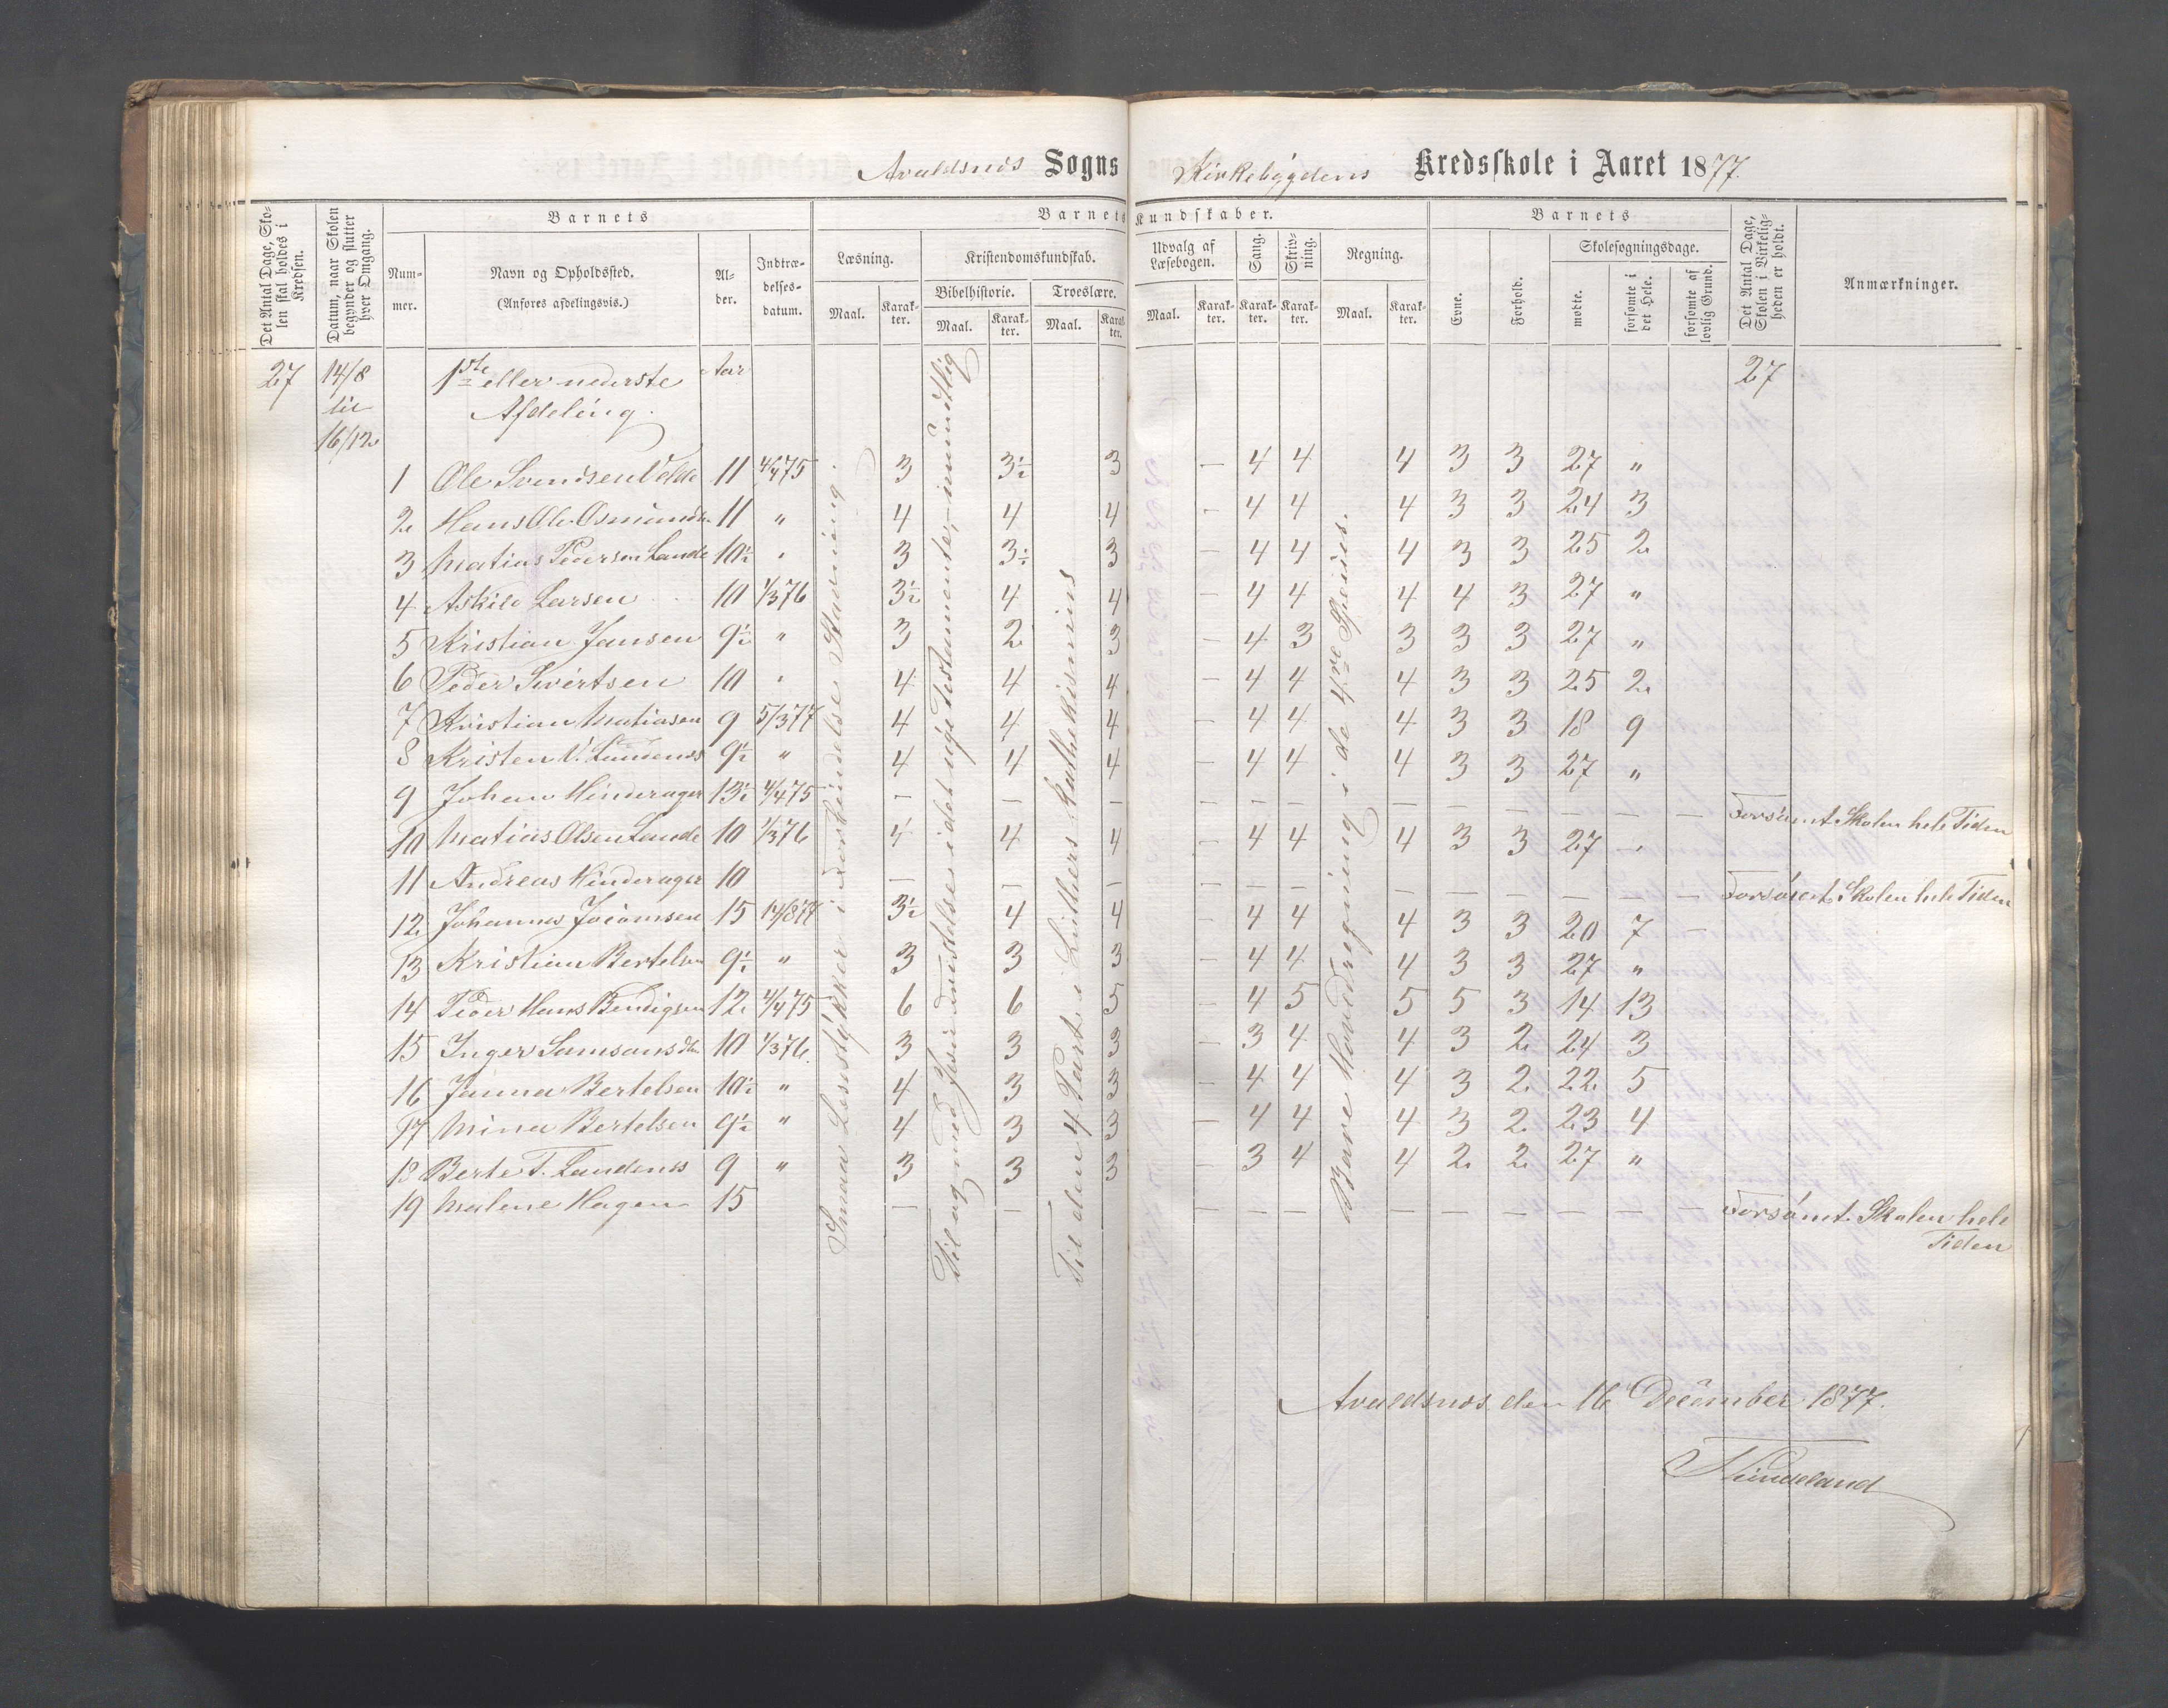 Avaldsnes Sogns Kirkebygdens Kredsskole i Aaret 1877.
Det Antal Dage, Skolen skal holdes i Kredsen.
Datum, naar Skolen begynder og slutter hver Omgang.
Barnets
Barnets Kundskaber.
Barnets
Det Antal Dage, Skolen i Virkeligheden er holdt.
Anmærkninger.
Nummer.
Navn og Opholdssted.
(Anføres afdelingsvis.)
Alder.
Indtrædelsesdatum.
Læsning.
Kristendomskundskab.
Bibelhistorie.
Troeslære.
Udvalg af Læsebogen.
Sang.
Skrivning.
Regning.
Evne.
Forhold.
Skolesøgningsdage.
Maal. Karakter. Maal. Karakter. Maal. Karakter. Maal. Karakter. Karakter. Karakter. Maal. Karakter.
mødte.
forsømte i det Hele.
forsømte af lovlig Grund.
27 14/8 1ste eller nederste Aar 27
til Afdeling.
16/12
1 Ole Svendsen Velde 11 4/475 3 3½ 3 – 4 4 4 3 3 27 "
2 Hans Ol. Osmunds. 11 " 4 4 4 – 4 4 4 3 3 24 3
3 Matias Pedersen Lande 10½ " 3 3½ 3 – 4 4 4 3 3 25 2
4 Askild Larsen 10 1/376 3½ 4 4 – 4 4 4 4 3 27 "
5 Kristian Jansen 9½ " 3 2 3 – 4 3 3 3 3 27 "
6 Peder Sivertsen 10 " 4 4 4 – 4 4 4 3 3 25 2
7 Kristian Matiasen 9 5/377 4 4 4 – 4 4 4 3 3 18 9
8 Kristen V. 9½ " 4 4 4 – 4 4 4 3 3 27 "
9 Johan Hinderager 13½ 4/475 – – – – – – – – – – – – Forsømt Skolen hele Tiden
10 Matias Olsen Lande 10 1/376 4 4 4 – 4 4 4 3 3 27 "
11 Andreas Hinderager 10 – – – – – – – – – – – – Forsømt Skolen hele Tiden
12 Johannes Joramsen 15 14/877 3½ 4 4 – 4 4 4 3 3 20 7 –
13 Kristian Bertelsen 9½ " 3 3 3 – 4 4 4 3 3 27 "
14 Peder Hans Bendigsen 12 4/475 6 6 5 – 4 5 5 5 3 14 13
15 Inger Samsonsdtr 10 1/376. 3 3 3 – 3 4 4 3 2 24 3
16 Janna Bertelsen 10½ " 4 3 3 – 4 4 4 3 2 22 5
17 Mina Bertelsen 9½ " 4 3 3 – 4 4 4 3 2 23 4
18 Berte T. Landenes 9 " 3 3 3 – 3 4 4 2 2 27 "
19 Malene Hagen 15 – – – – – – – – – – – – Forsømt Skolen hele
Tiden
Smaa Læsestykker i Forbindelse Stavning.
Til og med Jesu Indsættelse i det nye Testamente, – mundtlig
Til den 4 Part i Luthers Kathekismus
Bare Hovedregning i de 4re Species.
Avaldsnes den 16 December 1877.